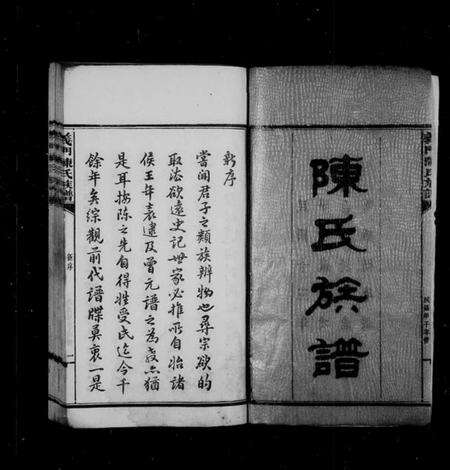 陳氏族譜
新序
嘗聞君子之類族辨物也尋宗欲的
取法欲遠史記世家必推所自始諸
侯王年表逮及曾元譜之為義亦猶
是耳按陳之先自得姓受氏迄今千
餘年矣綜觀前代譜牒莫衷一是
義門陳氏族譜
新序
一